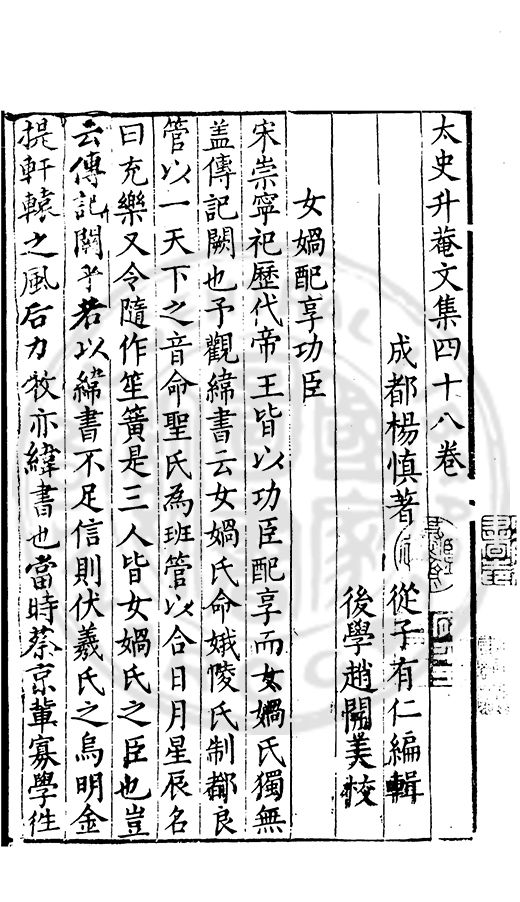 太史升菴文集四十八卷
成都楊慎著
從子有仁編輯
後學趙開美校
女媧配享功臣
宋崇寧祀歷代帝王皆以功臣配享而女媧氏獨無
盖傳記闕也予觀緯書云女媧氏命娥陵氏制都良
管以一天下之音命聖氏為班管以合日月星辰名
曰充樂又令隨作笙簧是三人皆女媧氏之臣也豈
云傳記闕乎若以緯書不足信則伏羲氏之鳥明金
提軒轅之風后力牧亦緯書也當時蔡京軰寡學徃